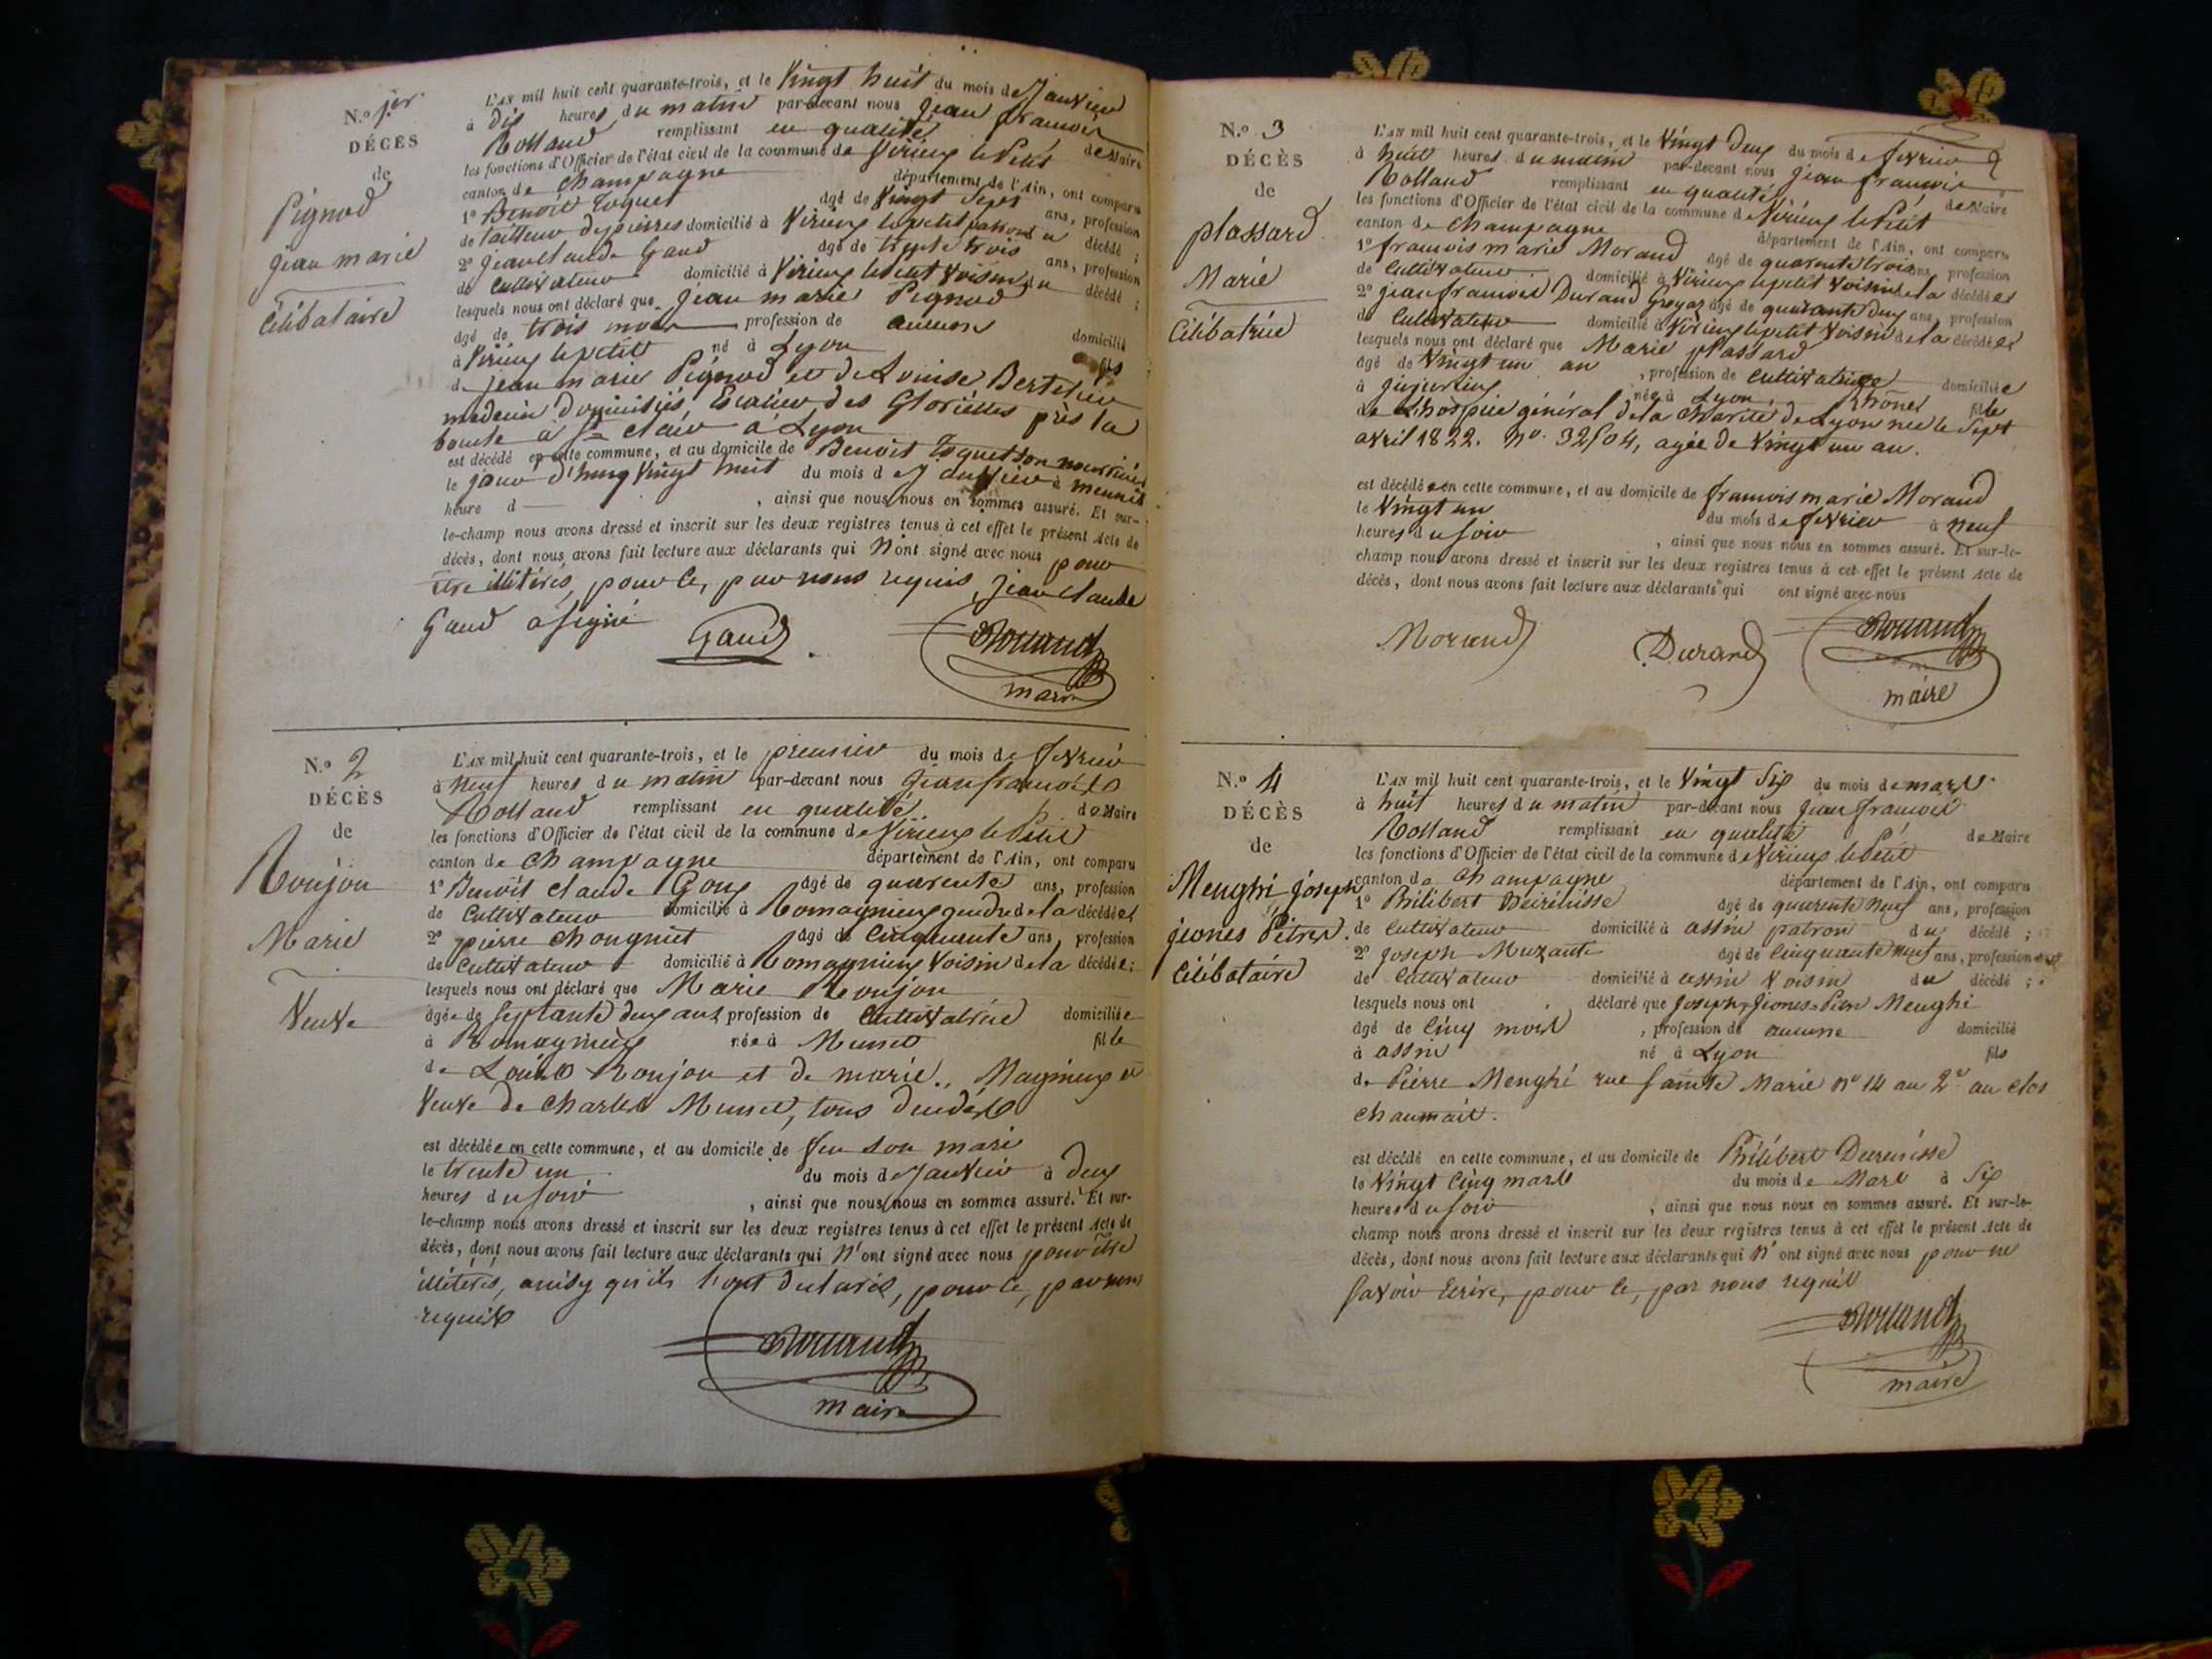 N.o 1er
DÉCÈS
de
Pignod
jean marie
Célibataire
L'AN mil huit cent quarante-trois, et le Vingt huit du mois de Janvier
à dix heures du matin par-devant nous jean françois
Rolland remplissant en qualité de Maire
les fonctions d'Officier de l'état civil de la commune de Virieux le Petit
canton de Champagne département de l'Ain, ont comparu
1o Benoit Toguet agé de Vingt Sept ans, profession
de tailleur de pierres domicilié à Virieux le petit patron du décédé ;
2o jean Claude Gaud agé de trente trois ans, profession
de Cultivateur domicilié à Virieux le petit Voisin du décédé ;
lesquels nous ont déclaré que jean marie Pignod
agé de trois mois profession de aucune domicilié
à Virieux le petit né à Lyon fils
de jean marie Pignod et de Louise
medecin Escalier des Gloriettes près la
boucle à St Clair a Lyon
est décédé en cette commune, et au domicile de Benoit Toguet son nourricier
le jour d'huy Vingt huit du mois de Janvier à
heure d , ainsi que nous nous en sommes assuré. Et sur-
le-champ nous avons dressé et inscrit sur les deux registres tenus à cet effet le présent Acte de
décès, dont nous avons fait lecture aux déclarants qui N'ont signé avec nous pour
être illitérés, pour ce, par nous requis, Jean Claude
Gaud a signé
Gaud Rolland
maire
N.o 2
DÉCÈS
de
Roujon
Marie
Veuve
L'AN mil huit cent quarante-trois, et le premier du mois de fevrier
à neuf heures du matin par-devant nous Jean françois
Rolland remplissant en qualité de Maire
les fonctions d'Officier de l'état civil de la commune de Virieux le Petit
canton de Champagne département de l'Ain, ont comparu
1o Benoit Claude Goux agé de quarente ans, profession
de Cultivateur domicilié à Romagnieux gendre de la décédée ;
2o pierre Chougnet agé de Cinquante ans, profession
de Cultivateur domicilié à Romagnieux Voisin de la décédée ;
lesquels nous ont déclaré que Marie Roujon
agée de Septante deux ans profession de Cultivatrice domiciliée
à Romagnieux née à Munet fille
de Louis Roujon et de marie Magnieux et
Veuve de Charles Munet, tous
est décédée en cette commune, et au domicile de feu son mari
le trente un du mois de Janvier à deux
heures du soir , ainsi que nous nous en sommes assuré. Et sur-
le-champ nous avons dressé et inscrit sur les deux registres tenus à cet effet le présent Acte de
décès, dont nous avons fait lecture aux déclarants qui N'ont signé avec nous pour être
illitérés, ainsy qu'ils l'ont declaré, pour ce, par nous
requis
Rolland
maire
N.o 3
DÉCÈS
de
plassard
Marie
Célibatrice
L'AN mil huit cent quarante-trois, et le Vingt deux du mois de fevrier
à huit heures du matin par-devant nous jean françois
Rolland remplissant en qualité de Maire
les fonctions d'Officier de l'état civil de la commune de Virieux le Petit
canton de Champagne département de l'Ain, ont comparu
1o françois marie Morand agé de quarente trois ans, profession
de Cultivateur domicilié à Virieux le petit Voisin de la décédée
2o jean françois Durand agé de quarante deux ans, profession
de Cultivateur domicilié à Virieux le petit Voisin de la décédée
lesquels nous ont déclaré que Marie plassard
agé de Vingt un an , profession de Cultivatrice domiciliée
à jujurieux née à Lyon, Rhône fille
de L'hospice général de la Charité de Lyon nee le Sept
avril 1822. No. 32504, agée de Vingt un an.
est décédée en cette commune, et au domicile de françois marie Morand
le Vingt un du mois de fevrier à neuf
heures du soir , ainsi que nous nous en sommes assuré. Et sur-le-
champ nous avons dressé et inscrit sur les deux registres tenus à cet effet le présent Acte de
décès, dont nous avons fait lecture aux déclarants qui ont signé avec nous
Morand Durand Rolland
maire
N.o 4
DÉCÈS
de
Menghi, joseph
jiones Pitres.
Célibataire
L'AN mil huit cent quarante-trois, et le Vingt Six du mois de mars
à huit heures du matin par-devant nous jean françois
Rolland remplissant en qualité de Maire
les fonctions d'Officier de l'état civil de la commune de Virieux le Petit
canton de Champagne département de l'Ain, ont comparu
1o Philibert agé de quarente neuf ans, profession
de Cultivateur domicilié à assin patron du décédé ;
2o joseph Muzante agé de Cinquante neuf ans, profession
de Cultivateur domicilié à assin Voisin du décédé ;
lesquels nous ont déclaré que joseph jiones Menghi
agé de Cinq mois , profession de aucune domicilié
à assin né à Lyon fils
de Pierre Menghi rue Sainte Marie no 14 au 2e au clos
Chaumais.
est décédé en cette commune, et au domicile de Philibert
le Vingt Cinq mars du mois de Mars à Six
heures du soir , ainsi que nous nous en sommes assuré. Et sur-le-
champ nous avons dressé et inscrit sur les deux registres tenus à cet effet le présent Acte de
décès, dont nous avons fait lecture aux déclarants qui N'ont signé avec nous pour ne
Savoir Ecrire, pour ce, par nous requis
Rolland
maire